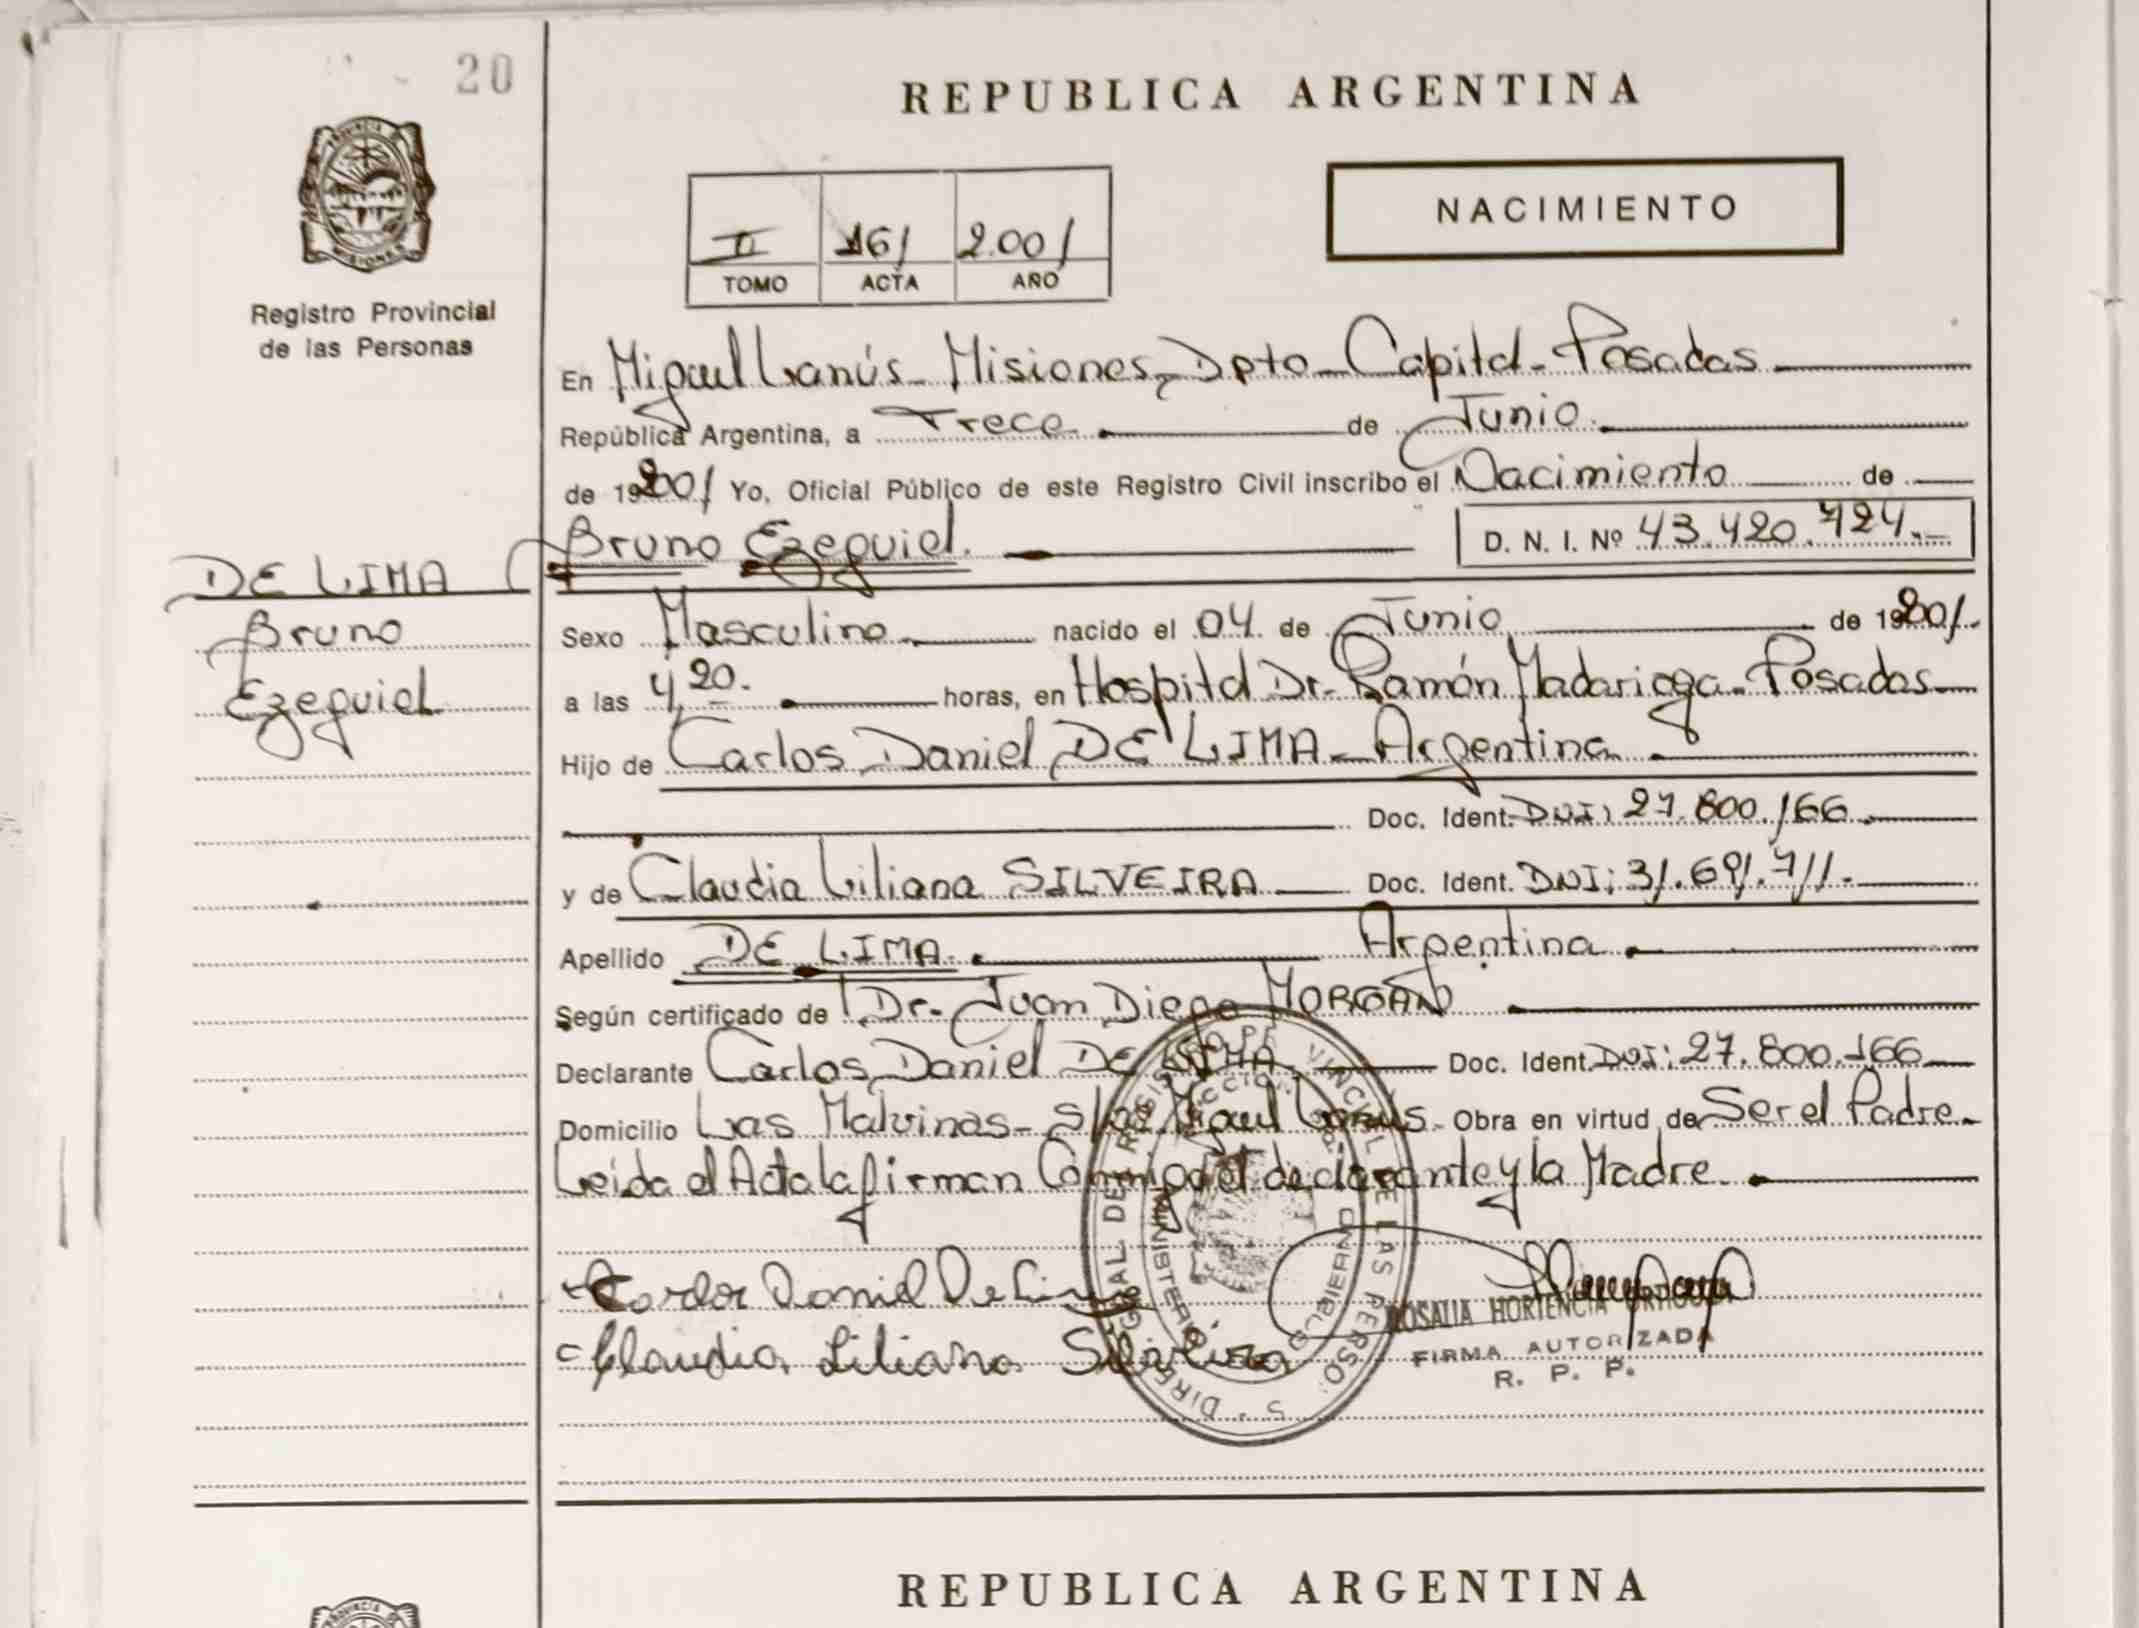 20
REPUBLICA ARGENTINA
PROVINCIA DE MISIONES
Registro Provincial
de las Personas
NACIMIENTO
II 161 2.001
TOMO ACTA AÑO
En Miguel Lanús - Misiones, Dpto - Capital - Posadas
República Argentina, a Trece de Junio
de 2001 Yo, Oficial Público de este Registro Civil inscribo el Nacimiento de
Bruno Ezequiel. D. N. I. Nº 43.420.724.-
DE LIMA
Bruno
Ezequiel
Sexo Masculino nacido el 04 de Junio de 2001.
a las 4,20. horas, en Hospital Dr. Ramón Madariaga - Posadas
Hijo de Carlos Daniel DE LIMA - Argentina
Doc. Ident. DNI: 27.800.166.
y de Claudia Liliana SILVEIRA Doc. Ident. DNI: 31.691.711.
Apellido DE LIMA. Argentina
Según certificado de Dr. Juan Diego MORGAN
Declarante Carlos Daniel DE LIMA Doc. Ident. DNI: 27.800.166
Domicilio Las Malvinas - S/Nº Miguel Lanús - Obra en virtud de Ser el Padre.
Leída el Acta la firman Conmigo el declarante y la Madre.
Carlos Daniel De Lima
Claudia Liliana Silveira
ROSALIA HORTENCIA
FIRMA AUTORIZADA
R. P. P.
REPUBLICA ARGENTINA